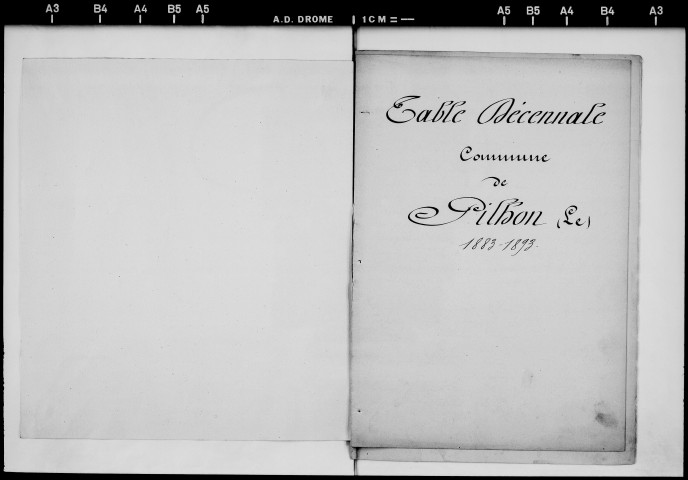 A3 B4 A4 B5 A5 A.D. DROME 1CM= A5 B5 A4 B4 A3
Table Décennale
Commune
de
Pilhon (Le)
1883-1893.